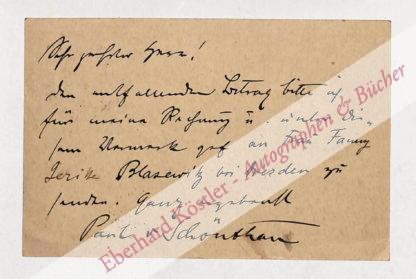 Sehr geehrter Herr!
den entfallenden Betrag bitte ich
für meine Rechnung u. unter die-
sem Vermerk gef. an Frau Fanny
Blasewitz bei Dresden zu
senden. Ganz ergebenst
Paul v Schönthan
Eberhard Köstler - Autographen & Bücher